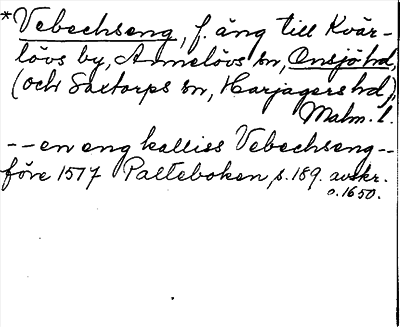 *Vebechseng, f. äng till Kvär-
lövs by, Annelövs sn, Onsjö hd,
(och Saxtorps sn, Harjagers hd),
Malm. l.
-- en eng kalliss Vebechseng --
före 1517 Palteboken s. 189. avskr.
o. 1650.